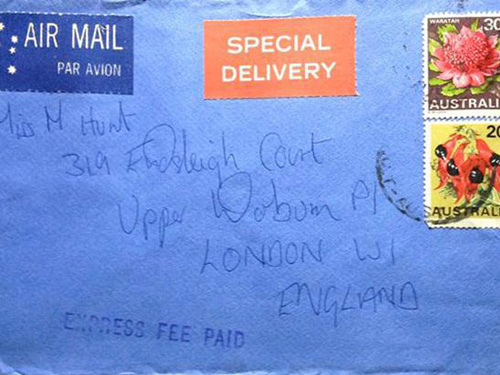 AIR MAIL
PAR AVION
SPECIAL
DELIVERY
WARATAH 30
AUSTRALIA
20
AUSTRALIA
Miss M Hunt
319 Endsleigh Court
Upper Woburn Pl
LONDON W1
ENGLAND
EXPRESS FEE PAID